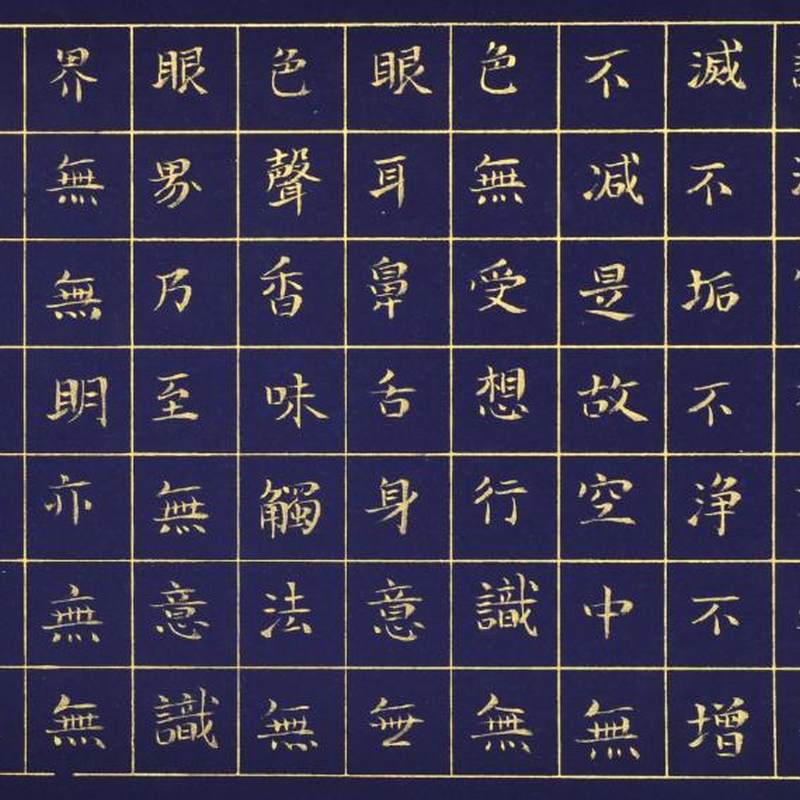 滅不垢不淨不增
不减是故空中無
色無受想行識無
眼耳鼻舌身意無
色聲香味觸法無
眼界乃至無意識
界無無明亦無無